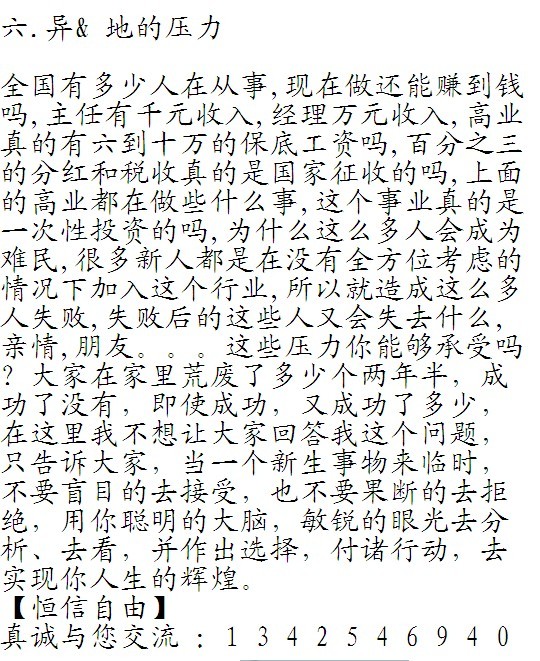 六.异& 地的压力
全国有多少人在从事,现在做还能赚到钱
吗,主任有千元收入,经理万元收入,高业
真的有六到十万的保底工资吗,百分之三
的分红和税收真的是国家征收的吗,上面
的高业都在做些什么事,这个事业真的是
一次性投资的吗,为什么这么多人会成为
难民,很多新人都是在没有全方位考虑的
情况下加入这个行业,所以就造成这么多
人失败,失败后的这些人又会失去什么,
亲情,朋友。。。这些压力你能够承受吗
？大家在家里荒废了多少个两年半，成
功了没有，即使成功，又成功了多少，
在这里我不想让大家回答我这个问题，
只告诉大家，当一个新生事物来临时，
不要盲目的去接受，也不要果断的去拒
绝，用你聪明的大脑，敏锐的眼光去分
析、去看，并作出选择，付诸行动，去
实现你人生的辉煌。
【恒信自由】
真诚与您交流：1 3 4 2 5 4 6 9 4 0